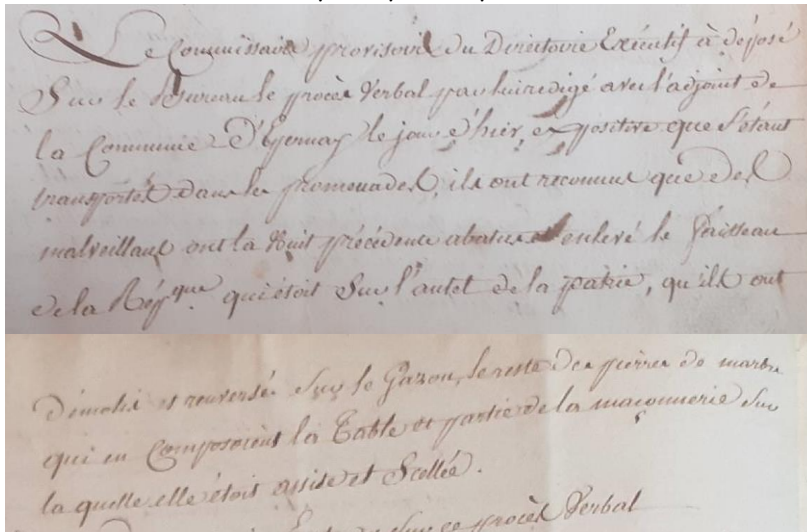 Le Commissaire provisoire du Directoire Exécutif à déposé
Sur le Bureau le procès Verbal par lui redigé avec l'adjoint de
la Commune D'Epernay le jour d'hier, expositive que S'étant
transportés dans les promenades, ils ont reconnus que des
malveillans ont la Nuit précédente abatus et enlevé le faisseau
de la Rép<sup>que</sup> qui étoit Sur l'autel de la patrie, qu'ils ont
démolis et renversés Sur le Gazon, le reste des pierres de marbre
qui en Composoient la Table et partie de la maçonnerie Sur
la quelle elle étoit assise et Scellée.
Sur ce procès Verbal